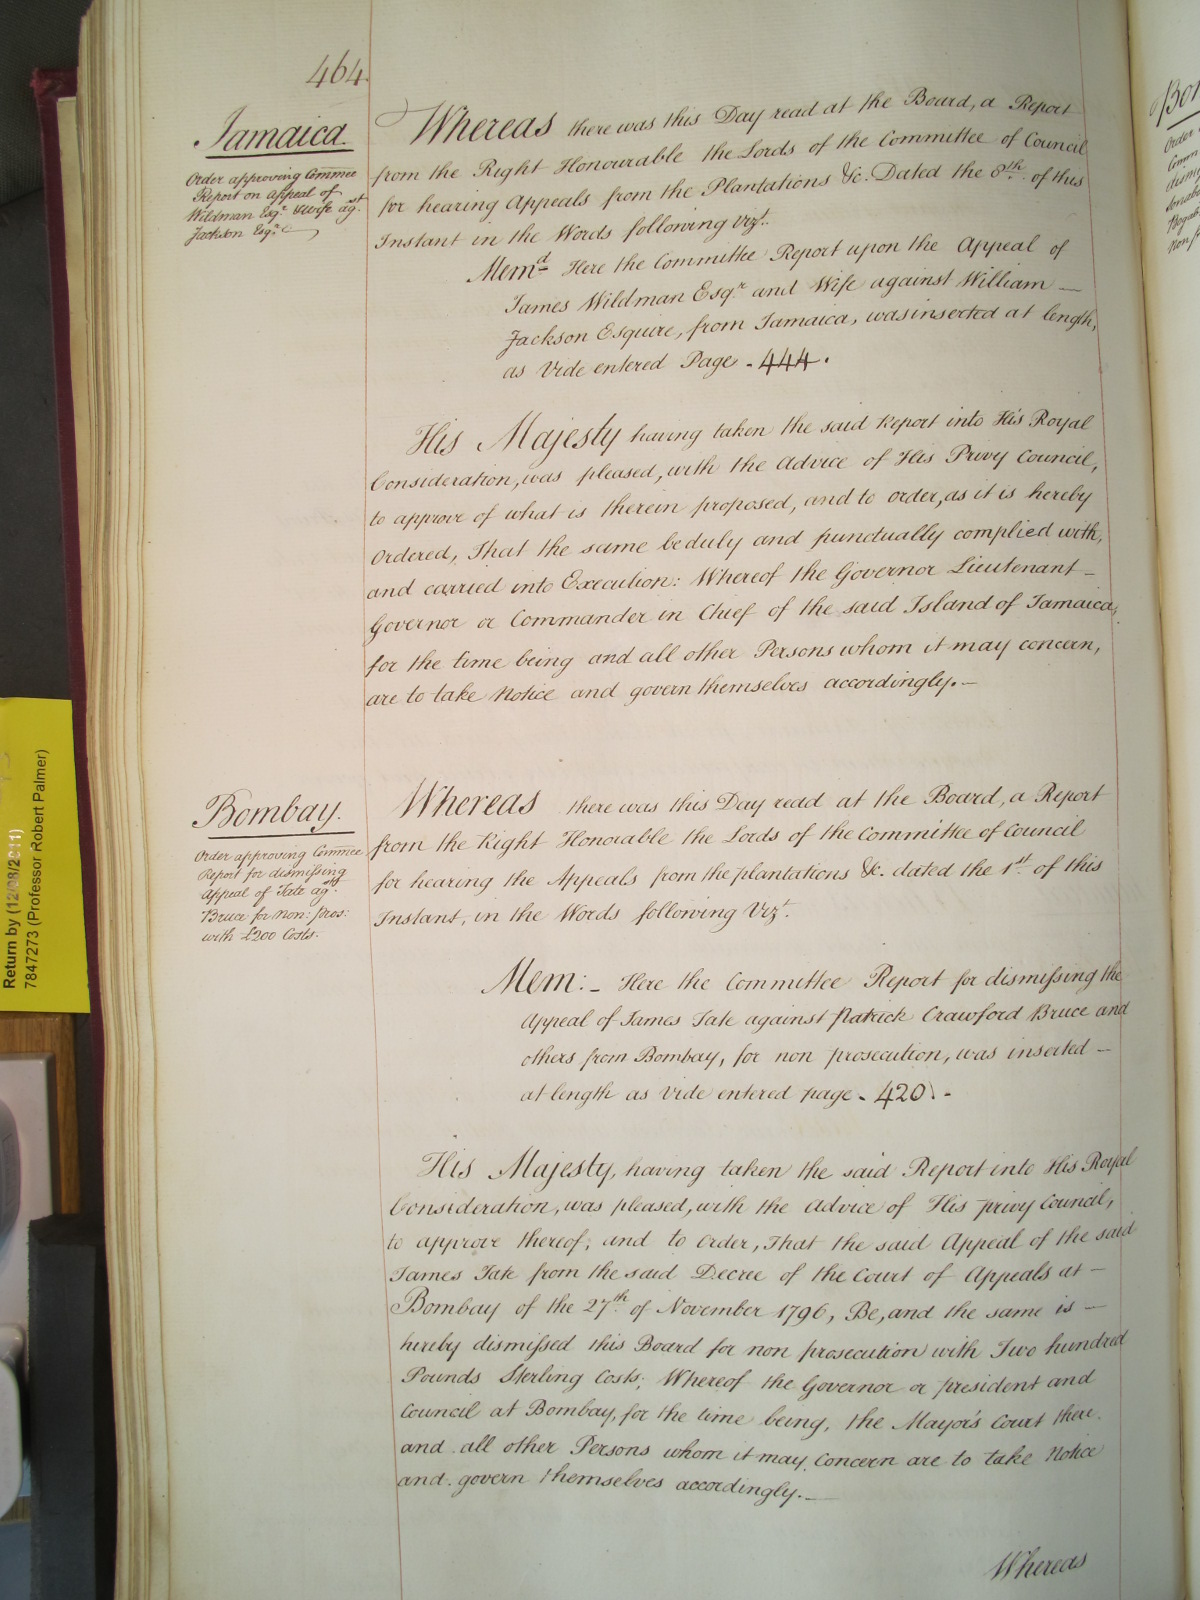 464.
Jamaica.
Order approving Commee
Report on Appeal of
Wildman Esqr. & Wife agst.
Jackson Esqr.
Whereas there was this Day read at the Board, a Report
from the Right Honourable the Lords of the Committee of Council
for hearing Appeals from the Plantations &c. Dated the 8th. of this
Instant in the Words following Vizt.
Memd. Here the Committee Report upon the Appeal of
James Wildman Esqr. and Wife against William —
Jackson Esquire, from Jamaica, was inserted at length,
as Vide entered Page - 444.
His Majesty having taken the said Report into His Royal
Consideration, was pleased, with the Advice of His Privy Council,
to approve of what is therein proposed, and to order, as it is hereby
Ordered, That the same be duly and punctually complied with,
and carried into Execution: Whereof the Governor Lieutenant —
Governor or Commander in Chief of the said Island of Jamaica,
for the time being and all other Persons whom it may concern,
are to take Notice and govern themselves accordingly. —
Bombay.
Order approving Commee
Report for dismissing
Appeal of Tate agst.
Bruce for non: pros:
with £200 Costs.
Whereas there was this Day read at the Board, a Report
from the Right Honorable the Lords of the Committee of Council
for hearing the Appeals from the plantations &c. dated the 1st. of this
Instant, in the Words following Vizt.
Mem: - Here the Committee Report for dismissing the
Appeal of James Tate against Patrick Crawford Bruce and
others from Bombay, for non prosecution, was inserted —
at length as Vide entered page - 420. -
His Majesty, having taken the said Report into His Royal
Consideration, was pleased, with the Advice of His privy Council,
to approve thereof, and to Order, That the said Appeal of the said
James Tate from the said Decree of the Court of Appeals at —
Bombay of the 27th. of November 1796, Be, and the same is —
hereby dismissed this Board for non prosecution with Two hundred
Pounds Sterling Costs; Whereof the Governor or president and
Council at Bombay, for the time being, the Mayor's Court there,
and all other Persons whom it may Concern are to take Notice
and govern themselves accordingly. —
Whereas
Return by (12/08/2011)
7847273 (Professor Robert Palmer)